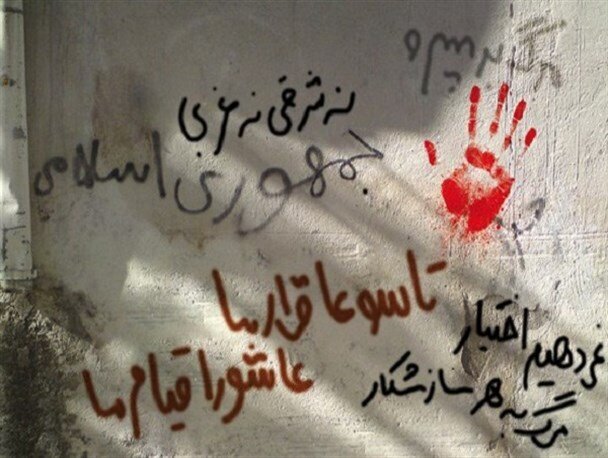 نه شرقی نه غربی
جمهوری اسلامی
تاسوعا قرار ما
عاشورا قیام ما
نمی دهیم اختیار
مرگ به هر سازشکار